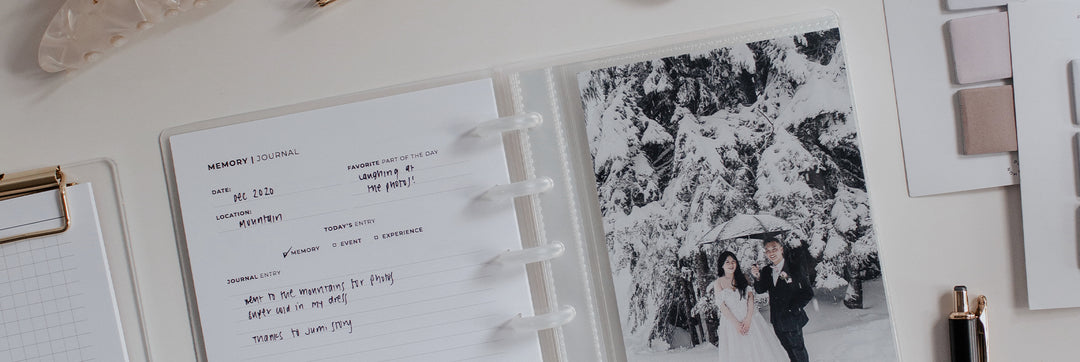 MEMORY | JOURNAL
DATE: Dec 2020
FAVORITE PART OF THE DAY
Laughing at
the photos!
LOCATION: Mountain
TODAY'S ENTRY
✓ MEMORY □ EVENT □ EXPERIENCE
JOURNAL ENTRY
went to the mountains for photos
super cold in my dress
Thanks to Jumi story